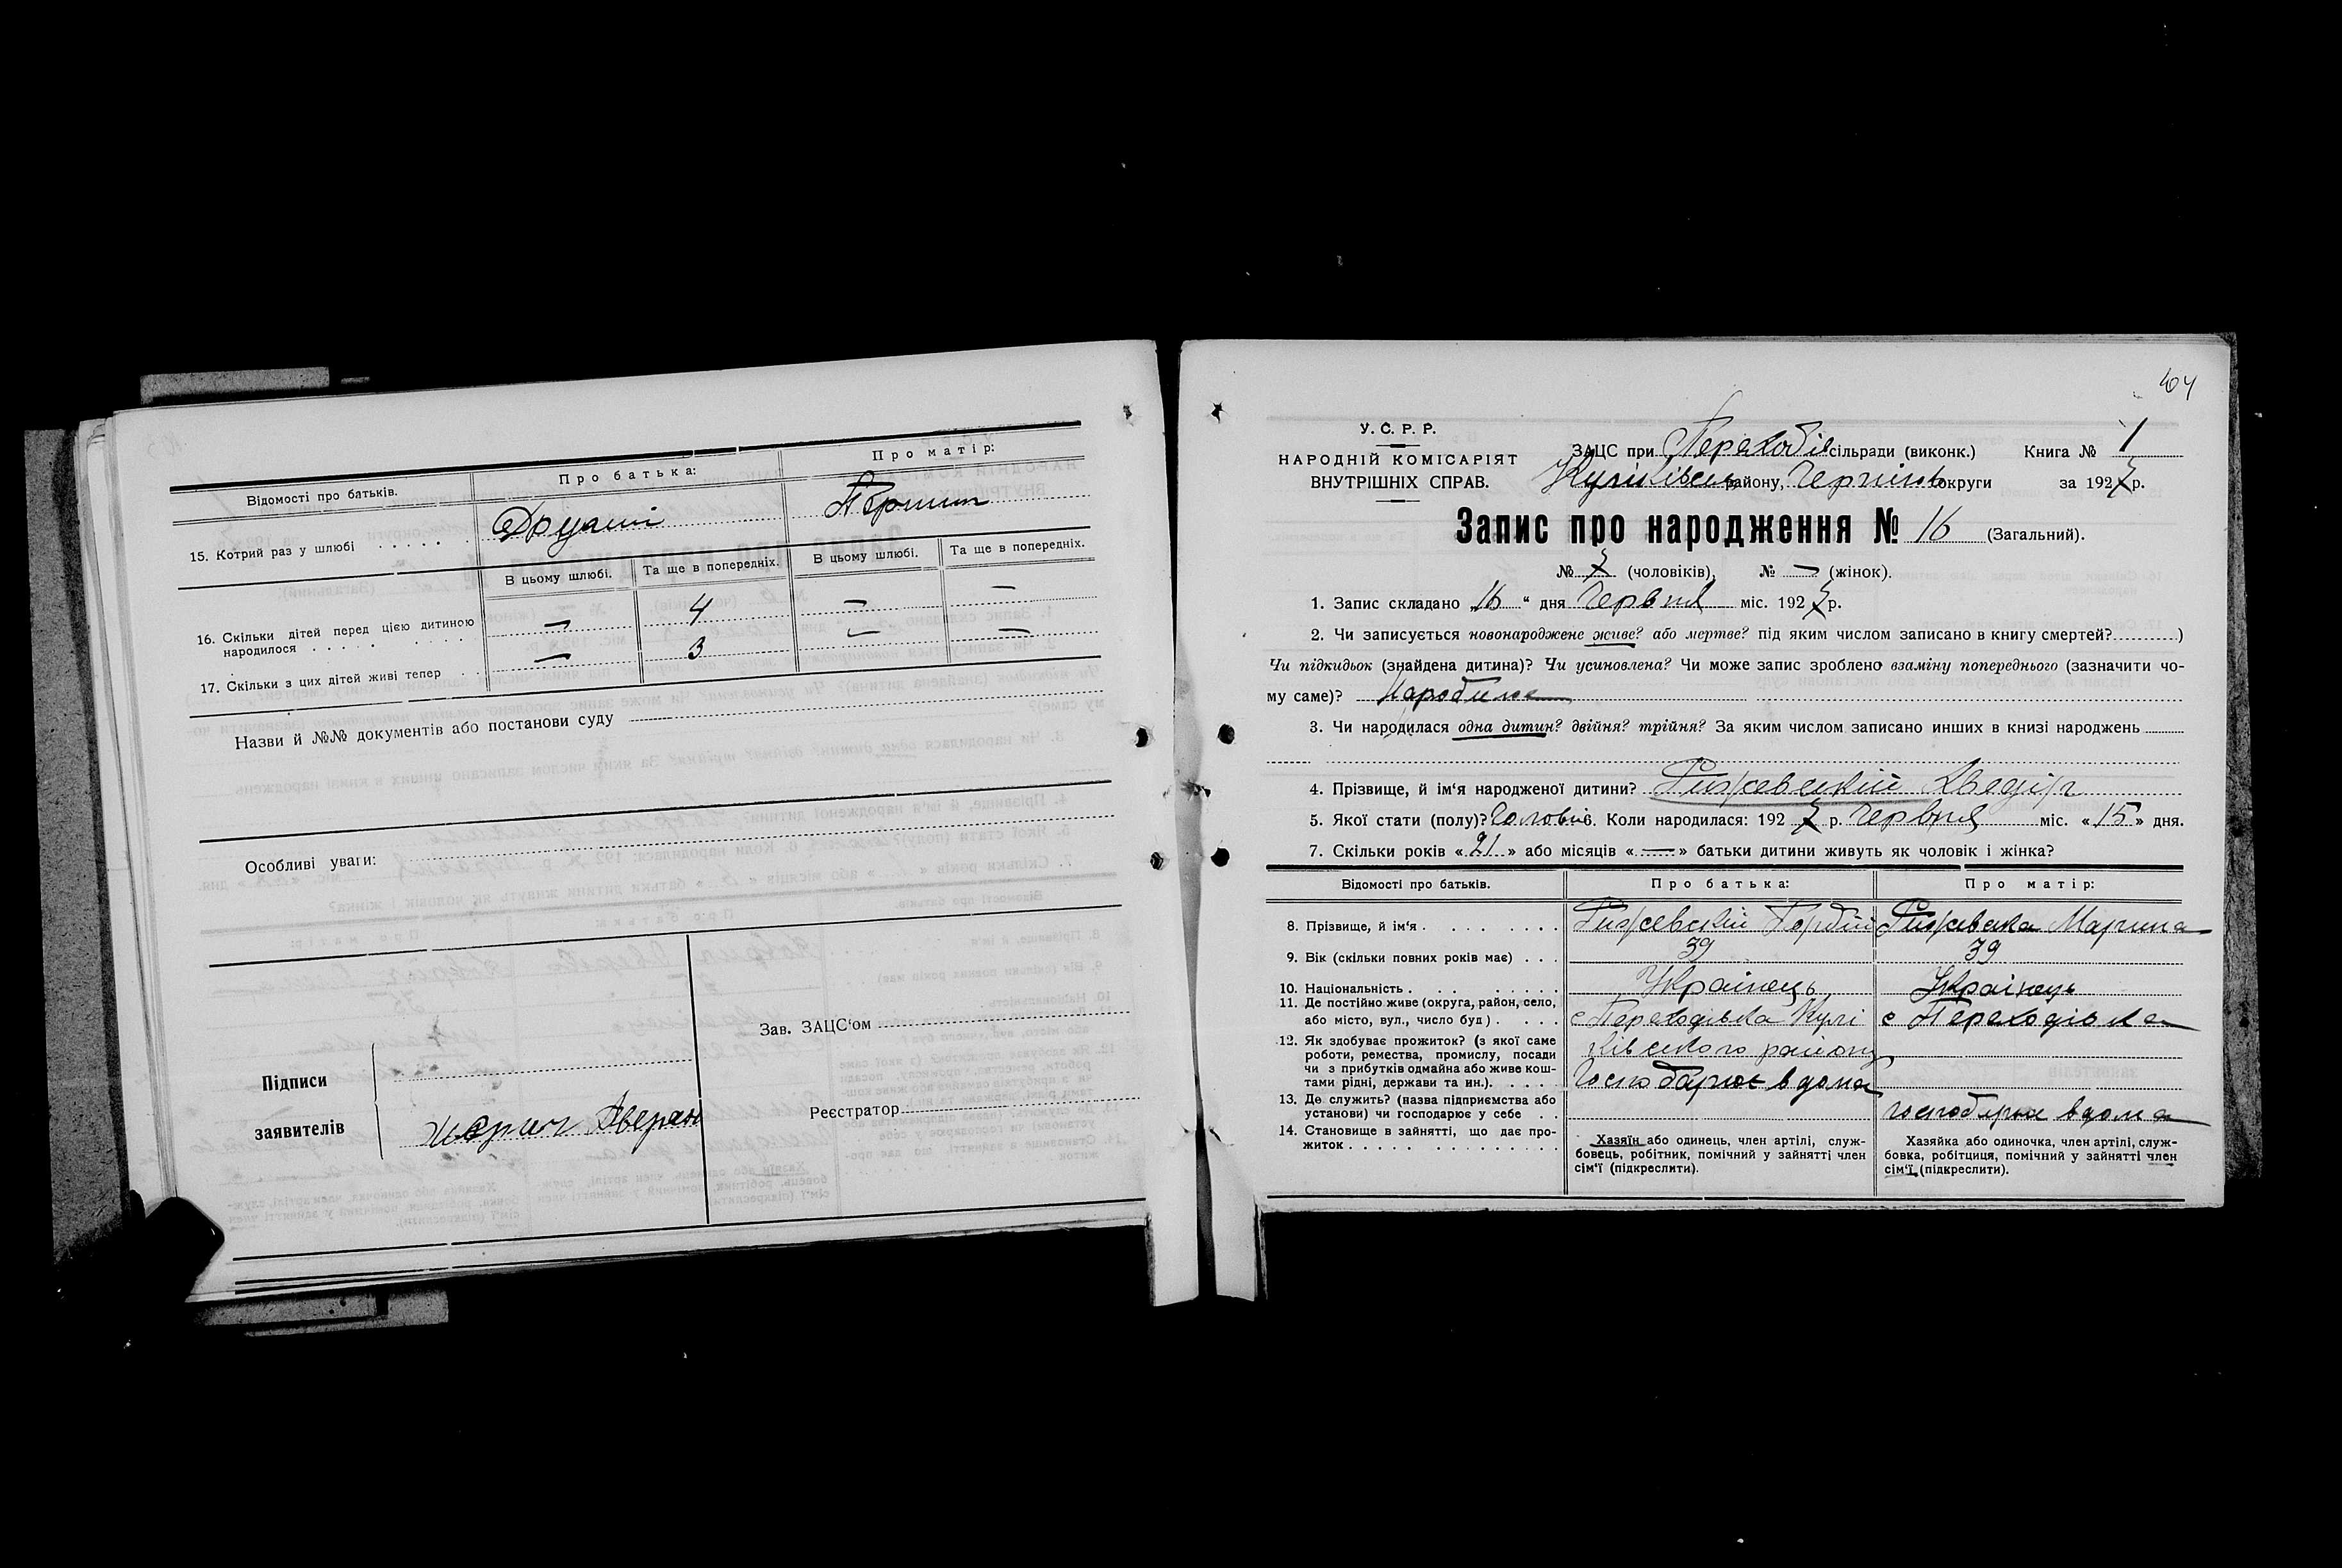 Відомості про батьків. Про батька: Про матір:
15. Котрий раз у шлюбі . . . . . Другий Перший
В цьому шлюбі. Та ще в попередніх. В цьому шлюбі. Та ще в попередніх.
16. Скільки дітей перед цією дитиною
народилося . . . . . — 4 — —
17. Скільки з цих дітей живі тепер . . — 3 — —
Назви й №№ документів або постанови суду
Особливі уваги:
Підписи
заявителів
Аверян
Зав. ЗАЦС‘ом
Реєстратор
У. С. Р. Р.
НАРОДНІЙ КОМІСАРІЯТ
ВНУТРІШНІХ СПРАВ.
ЗАЦС при Переходів сільради (виконк.) Книга № 1
Куликівськ району, Чернігів округи за 1927 р.
Запис про народження № 16 (Загальний).
№ 7 (чоловіків), № — (жінок).
1. Запис складано „16“ дня Червня міс. 1927 р.
2. Чи записується новонароджене живе? або мертве? під яким числом записано в книгу смертей?..........)
Чи підкидьок (знайдена дитина)? Чи усиновлена? Чи може запис зроблено взаміну попереднього (зазначити чо-
му саме)?
3. Чи народилася одна дитин? двійня? трійня? За яким числом записано инших в книзі народжень
4. Прізвище, й ім‘я народженої дитини? Рижевский Хведір
5. Якої стати (полу)? Чоловіч 6. Коли народилася: 1927 р. Червня міс. «15» дня.
7. Скільки років «21» або місяців «—» батьки дитини живуть як чоловік і жінка?
Відомості про батьків. Про батька: Про матір:
8. Прізвище, й ім‘я . . . . . . . . Рижевский Гордій Рижевска Марина
9. Вік (скільки повних років має) . . . 39 39
10. Національність . . . . . . . Українець Українець
11. Де постійно живе (округа, район, село,
або місто, вул., число буд) . . . . с Переходівка Кулі с Переходівка
12. Як здобуває прожиток? (з якої саме ківського району
роботи, ремества, промислу, посади
чи з прибутків одмайна або живе кош-
тами рідні, держави та ин.). . . . . Господарює вдома
13. Де служить? (назва підприємства або
установи) чи господарює у себе . . господарює вдома
14. Становище в зайнятті, що дає про-
житок . . . . . . . . . . . . .
Хазяїн або одинець, член артілі, служ-
бовець, робітник, помічний у зайнятті член
сім‘ї (підкреслити).
Хазяйка або одиночка, член артілі, служ-
бовка, робітциця, помічний у зайнятті член
сім‘ї (підкреслити).